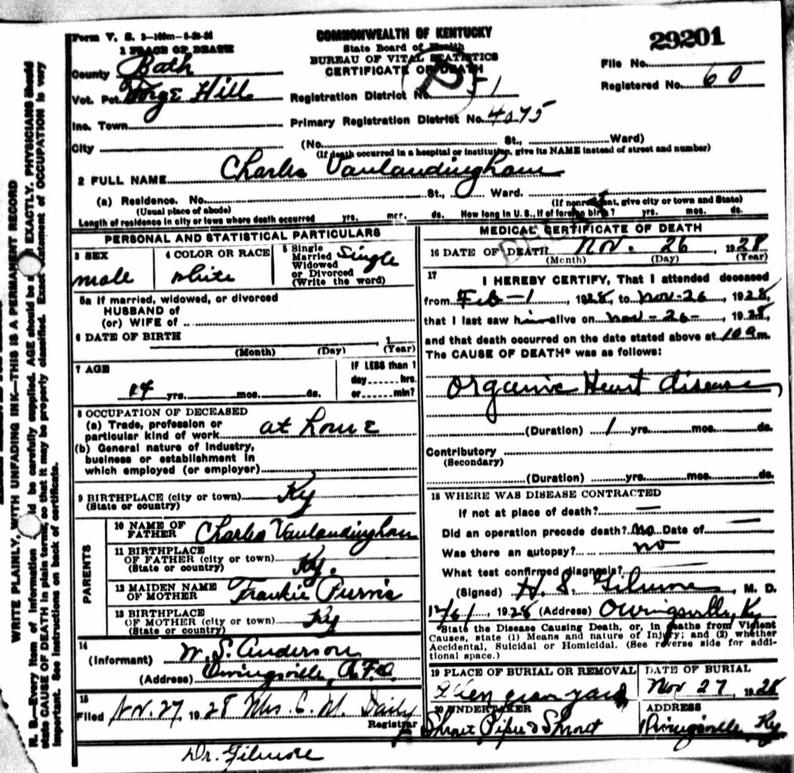 Form V. S.
COMMONWEALTH OF KENTUCKY
State Board of Health
BUREAU OF VITAL STATISTICS
CERTIFICATE OF DEATH
29201
File No.
Registered No. 60
1 PLACE OF DEATH
County Bath
Vot. Pct. Forge Hill
Registration District No. 51
Inc. Town
Primary Registration District No. 4075
City (No. St., Ward)
(If death occurred in a hospital or institution, give its NAME instead of street and number)
2 FULL NAME Charles Vanlandingham
(a) Residence. No. St., Ward.
(Usual place of abode) (If nonresident, give city or town and State)
Length of residence in city or town where death occurred yrs. mos. ds. How long in U.S., if of foreign birth? yrs. mos. ds.
PERSONAL AND STATISTICAL PARTICULARS
3 SEX male
4 COLOR OR RACE white
5 Single Married Widowed or Divorced (Write the word) Single
5a If married, widowed, or divorced
HUSBAND of
(or) WIFE of
6 DATE OF BIRTH 1
(Month) (Day) (Year)
7 AGE
yrs. mos. ds.
IF LESS than 1
day hrs.
or min?
8 OCCUPATION OF DECEASED
(a) Trade, profession or
particular kind of work at home
(b) General nature of industry,
business or establishment in
which employed (or employer)
9 BIRTHPLACE (city or town) Ky
(State or country)
PARENTS
10 NAME OF FATHER Charles Vanlandingham
11 BIRTHPLACE
OF FATHER (city or town) Ky.
(State or country)
12 MAIDEN NAME
OF MOTHER Frankie Purvis
13 BIRTHPLACE
OF MOTHER (city or town) Ky
(State or country)
14
(Informant) W. S. Anderson
(Address) Owingsville, R.F.D.
15
Filed Nov. 27, 1928 Mrs. C. M. Daily
Registrar
Dr. Gilmore
MEDICAL CERTIFICATE OF DEATH
16 DATE OF DEATH Nov. 26, 1928
(Month) (Day) (Year)
17 I HEREBY CERTIFY, That I attended deceased
from Feb-1, 1928, to Nov-26, 1928,
that I last saw him alive on Nov-26-, 1928,
and that death occurred on the date stated above at 10 am.
The CAUSE OF DEATH* was as follows:
Organic Heart disease
(Duration) 1 yrs. mos. ds.
Contributory
(Secondary)
(Duration) yrs. mos. ds.
18 WHERE WAS DISEASE CONTRACTED
If not at place of death? —
Did an operation precede death? No Date of —
Was there an autopsy? no
What test confirmed diagnosis?
(Signed) H. S. Gilmore, M. D.
1928 (Address) Owingsville, K
*State the Disease Causing Death, or, in deaths from Violent
Causes, state (1) Means and nature of Injury; and (2) whether
Accidental, Suicidal or Homicidal. (See reverse side for addi-
tional space.)
19 PLACE OF BURIAL OR REMOVAL
graveyard
DATE OF BURIAL
Nov 27, 1928
20 UNDERTAKER
Shrout Piper & Shrout
ADDRESS
Owingsville Ky
WRITE PLAINLY, WITH UNFADING INK—THIS IS A PERMANENT RECORD